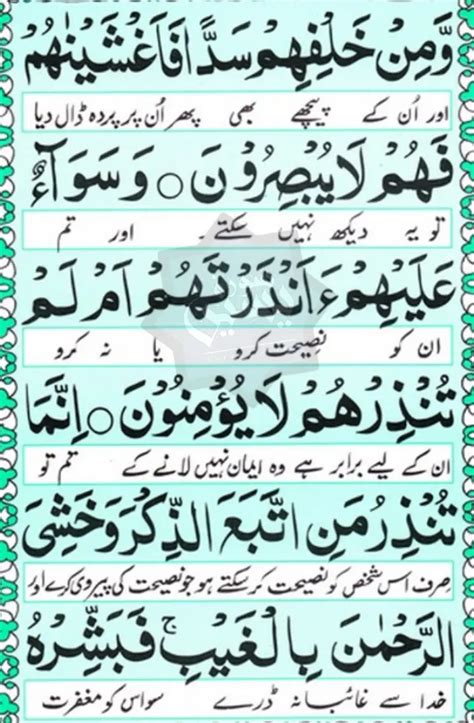 وَّمِنْ خَلْفِهِمْ سَدًّا فَاَغْشَيْنٰهُمْ
اور اُن کے پیچھے بھی پھر اُن پر پردہ ڈال دیا
فَهُمْ لَا يُبْصِرُوْنَ ○ وَسَوَآءٌ
تو یہ دیکھ نہیں سکتے اور تم
عَلَيْهِمْ ءَاَنْذَرْتَهُمْ اَمْ لَمْ
ان کو نصیحت کرو یا نہ کرو
تُنْذِرْهُمْ لَا يُؤْمِنُوْنَ ○ اِنَّمَا
ان کے لیے برابر ہے وہ ایمان نہیں لانے کے تم تو
تُنْذِرُ مَنِ اتَّبَعَ الذِّكْرَ وَخَشِىَ
صرف اس شخص کو نصیحت کر سکتے ہو جو نصیحت کی پیروی کرے اور
الرَّحْمٰنَ بِالْغَيْبِ ۚ فَبَشِّرْهُ
خدا سے غائبانہ ڈرے سو اس کو مغفرت